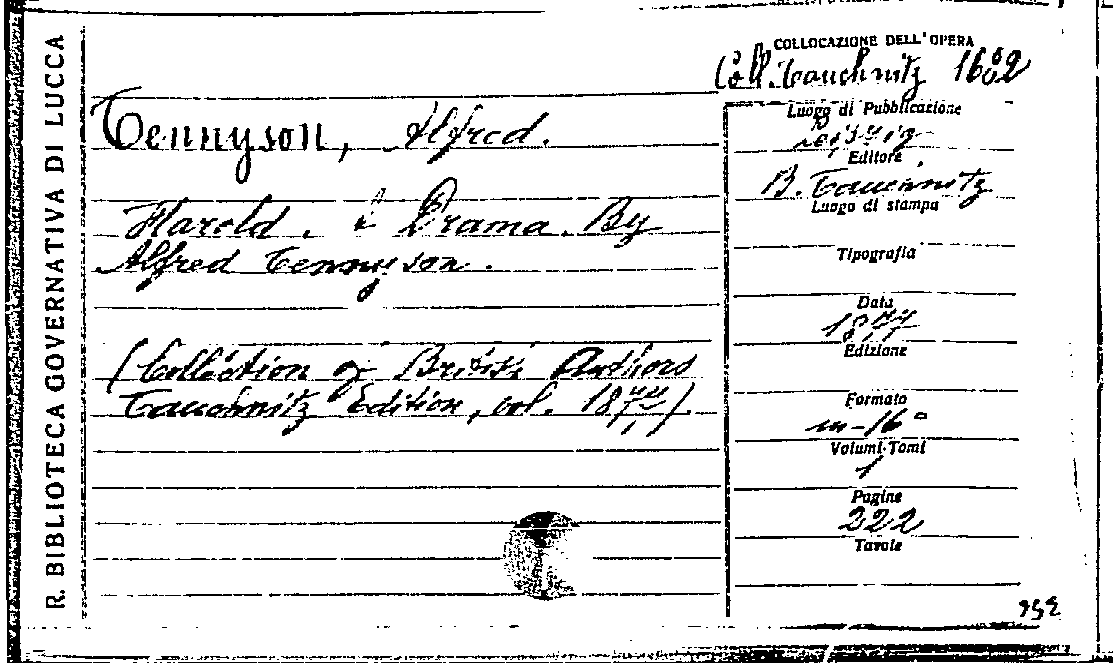 R. BIBLIOTECA GOVERNATIVA DI LUCCA
Tennyson, Alfred.
Harold. A Drama. By
Alfred Tennyson.
(Collection of British Authors
Tauchnitz Edition, vol. 1877).
COLLOCAZIONE DELL'OPERA
Coll. Tauchnitz 1602
Luogo di Pubblicazione
Leipzig
Editore
B. Tauchnitz
Luogo di stampa
Tipografia
Data
1877
Edizione
Formato
in-16°
Volumi-Tomi
1
Pagine
222
Tavole